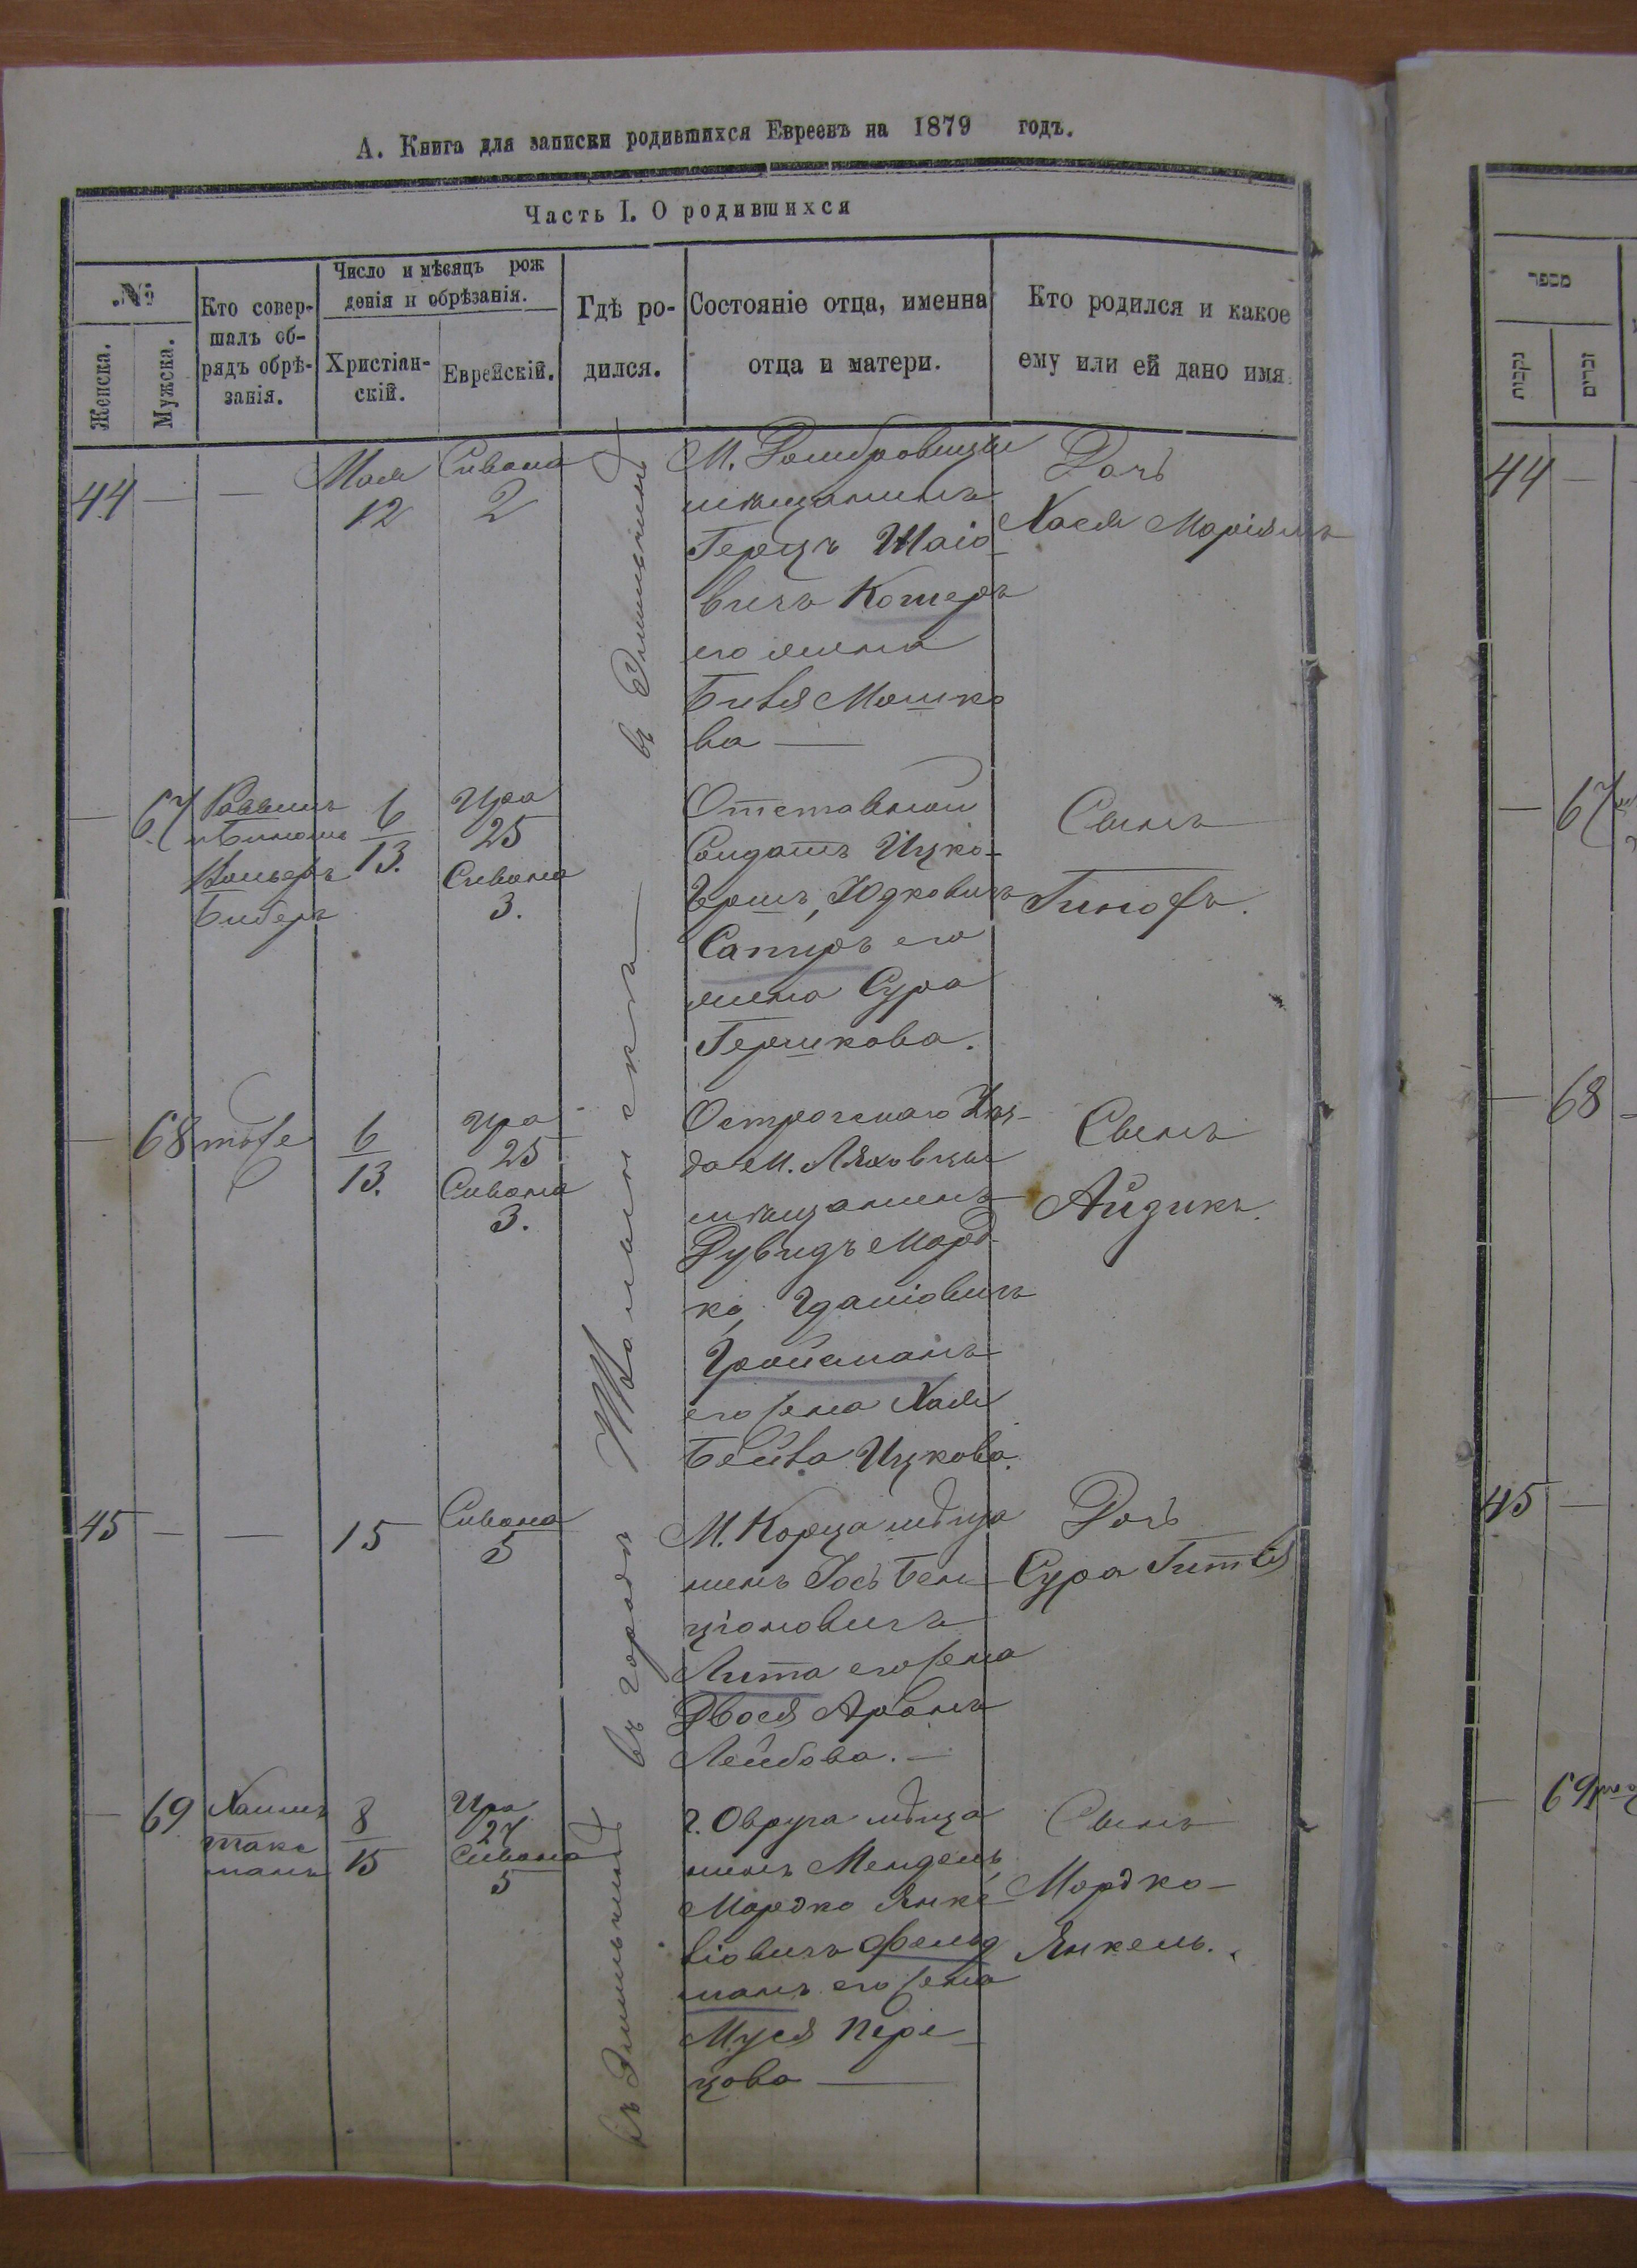 А. Книга для записки родившихся Евреевъ на 1879 годъ.
Часть I. О родившихся
№
Женска.
Мужска.
Кто совер-
шалъ об-
рядъ обрѣ-
занія.
Число и мѣсяцъ рож
денія и обрѣзанія.
Христіан-
скій.
Еврейскій.
Гдѣ ро-
дился.
Состояніе отца, именна
отца и матери.
Кто родился и какое
ему или ей дано имя.
въ городѣ
44 — —
Мая
12
Сивана
2
М. Домбровицы
мѣщанинъ
Герцъ Шаіо-
вичъ Котеръ
его жена
Бейля Мошко
ва —
Дочь
Хася Маріямъ
— 67
Раввинъ
Биберъ
6
13.
Ира
25
Сивана
3.
Отставной
Солдатъ Ицко-
Гершъ, Юдковичъ
Сапиръ его
жена Сура
Гершкова.
Сынъ
— 68 тоже
6
13.
Ира
25
Сивана
3.
м. Ляховцы
мѣщанинъ
Дувидъ Морд-
ко,
Гройсманъ
его жена Хая
Бейла Ицкова.
Сынъ
Айзикъ.
45 — — 15
Сивана
5
М. Корца мѣща
нинъ Іось Бен-
ціоновичъ
Лита его жена
Двося Аронъ
Лейбова. —
Дочь
Сура Гитля
— 69
Хаимъ
такс
манъ
8
15
Ира
27
Сивана
5
г. Овруча мѣща
нинъ Мендель
Мордко Янке
ліовичъ Фельд
манъ его жена
Муся Пере-
цова —
Сынъ
Мордко-
Янкель.
מספר
נקבות
זכרים
44 —
— 67
— 68
45 —
— 69